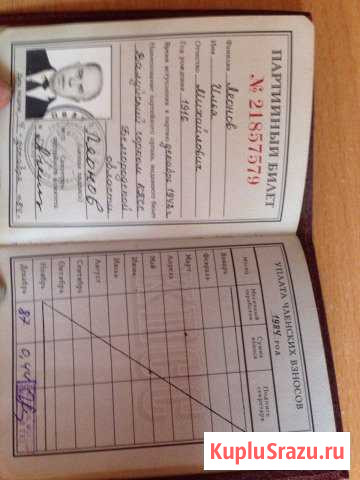 ПАРТИЙНЫЙ БИЛЕТ
№ 21857579
Фамилия Леонов
Имя Илья
Отчество Михайлович
Год рождения 1916
Время вступления в партию декабрь 1942 г.
Наименование партийного органа, выдавшего билет
Валуйский горком КПСС
Белгородской
области
Леонов
УПЛАТА ЧЛЕНСКИХ ВЗНОСОВ
1984 год
МЕСЯЦ
Месячный заработок
Сумма взноса
Подпись секретаря
Январь
Февраль
Март
Апрель
Май
Июнь
Июль
Август
Сентябрь
Октябрь
Ноябрь
Декабрь 87
KupluSrazu.ru